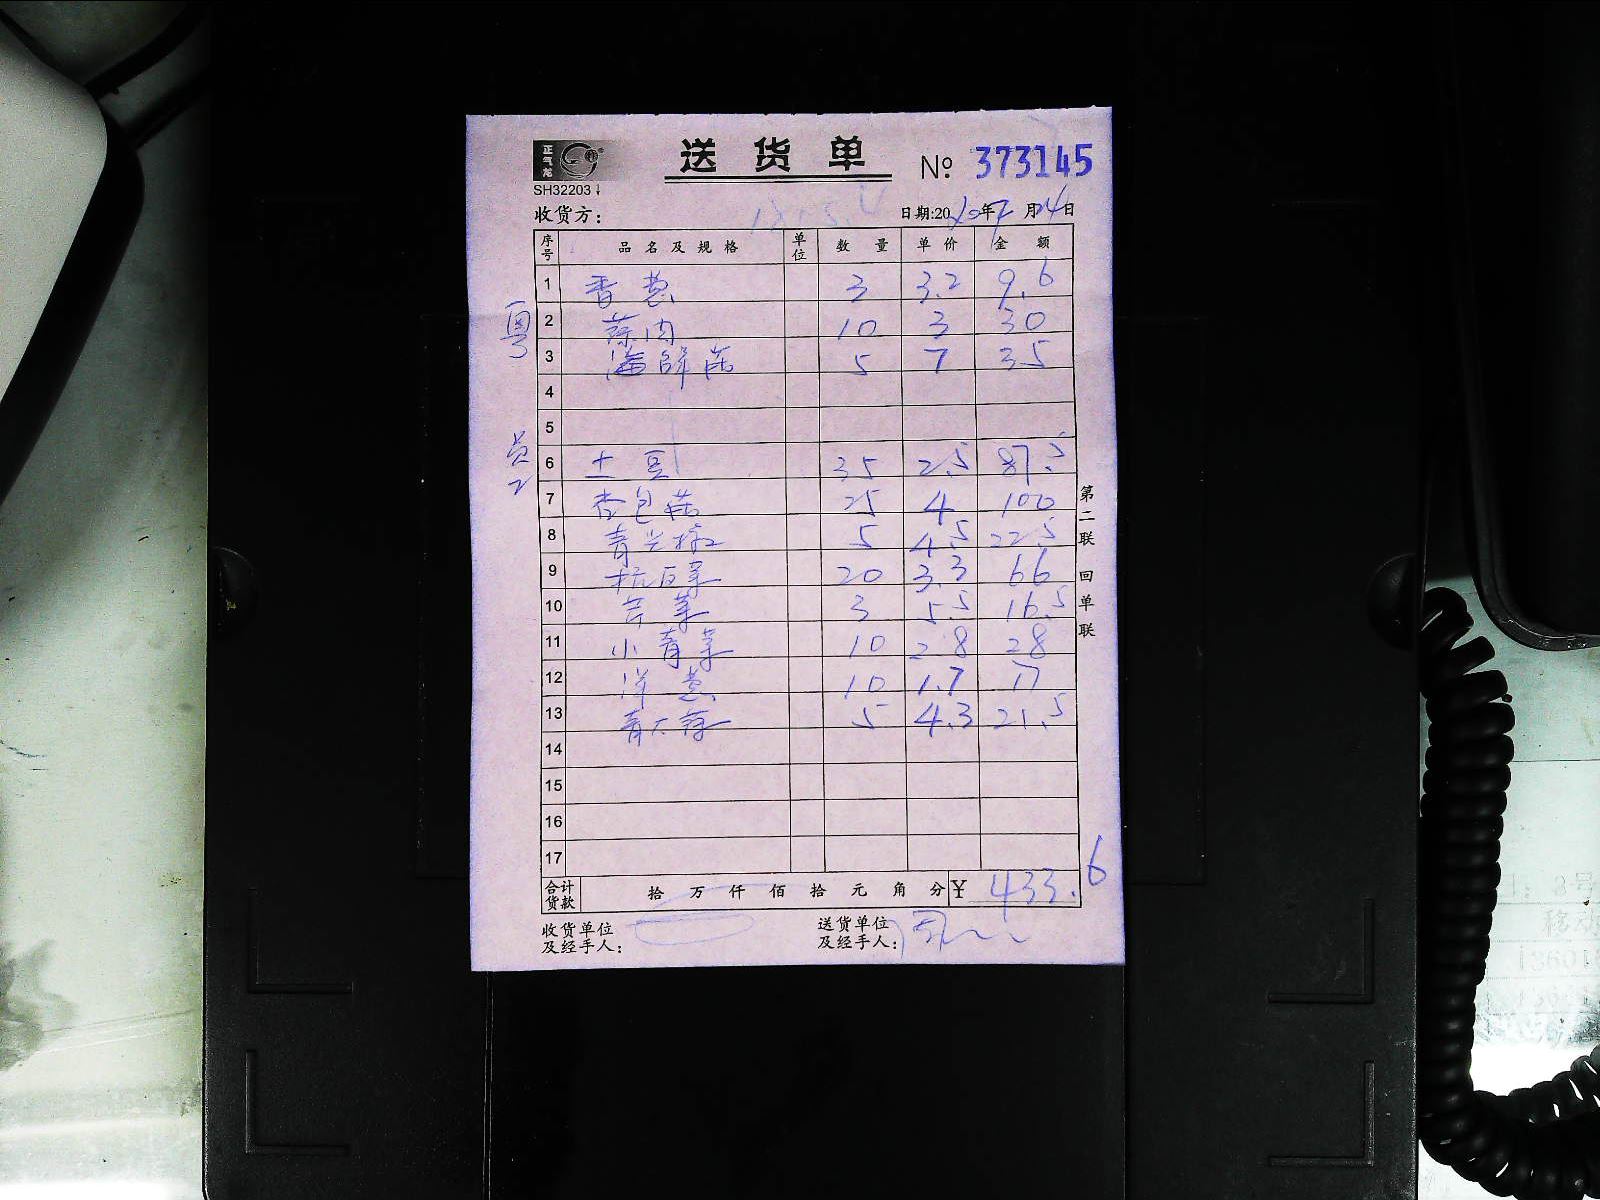 正气龙
SH32203
送货单
№ 373145
收货方:
日期:2020年7月24日
序号 品名及规格 单位 数量 单价 金额
1 香葱 3 3.2 9.6
2 蒜肉 10 3 30
3 海鲜菇 5 7 35
4
5
6 土豆 35 2.5 87.5
7 杏包菇 25 4 100
8 青尖椒 5 4.5 22.5
9 杭白菜 20 3.3 66
10 芹菜 3 5.5 16.5
11 小青菜 10 2.8 28
12 洋葱 10 1.7 17
13 青大蒜 5 4.3 21.5
14
15
16
17
粤
员工
第二联 回单联
合计货款 拾万仟佰拾元角分 ¥ 433.6
收货单位及经手人:
送货单位及经手人: